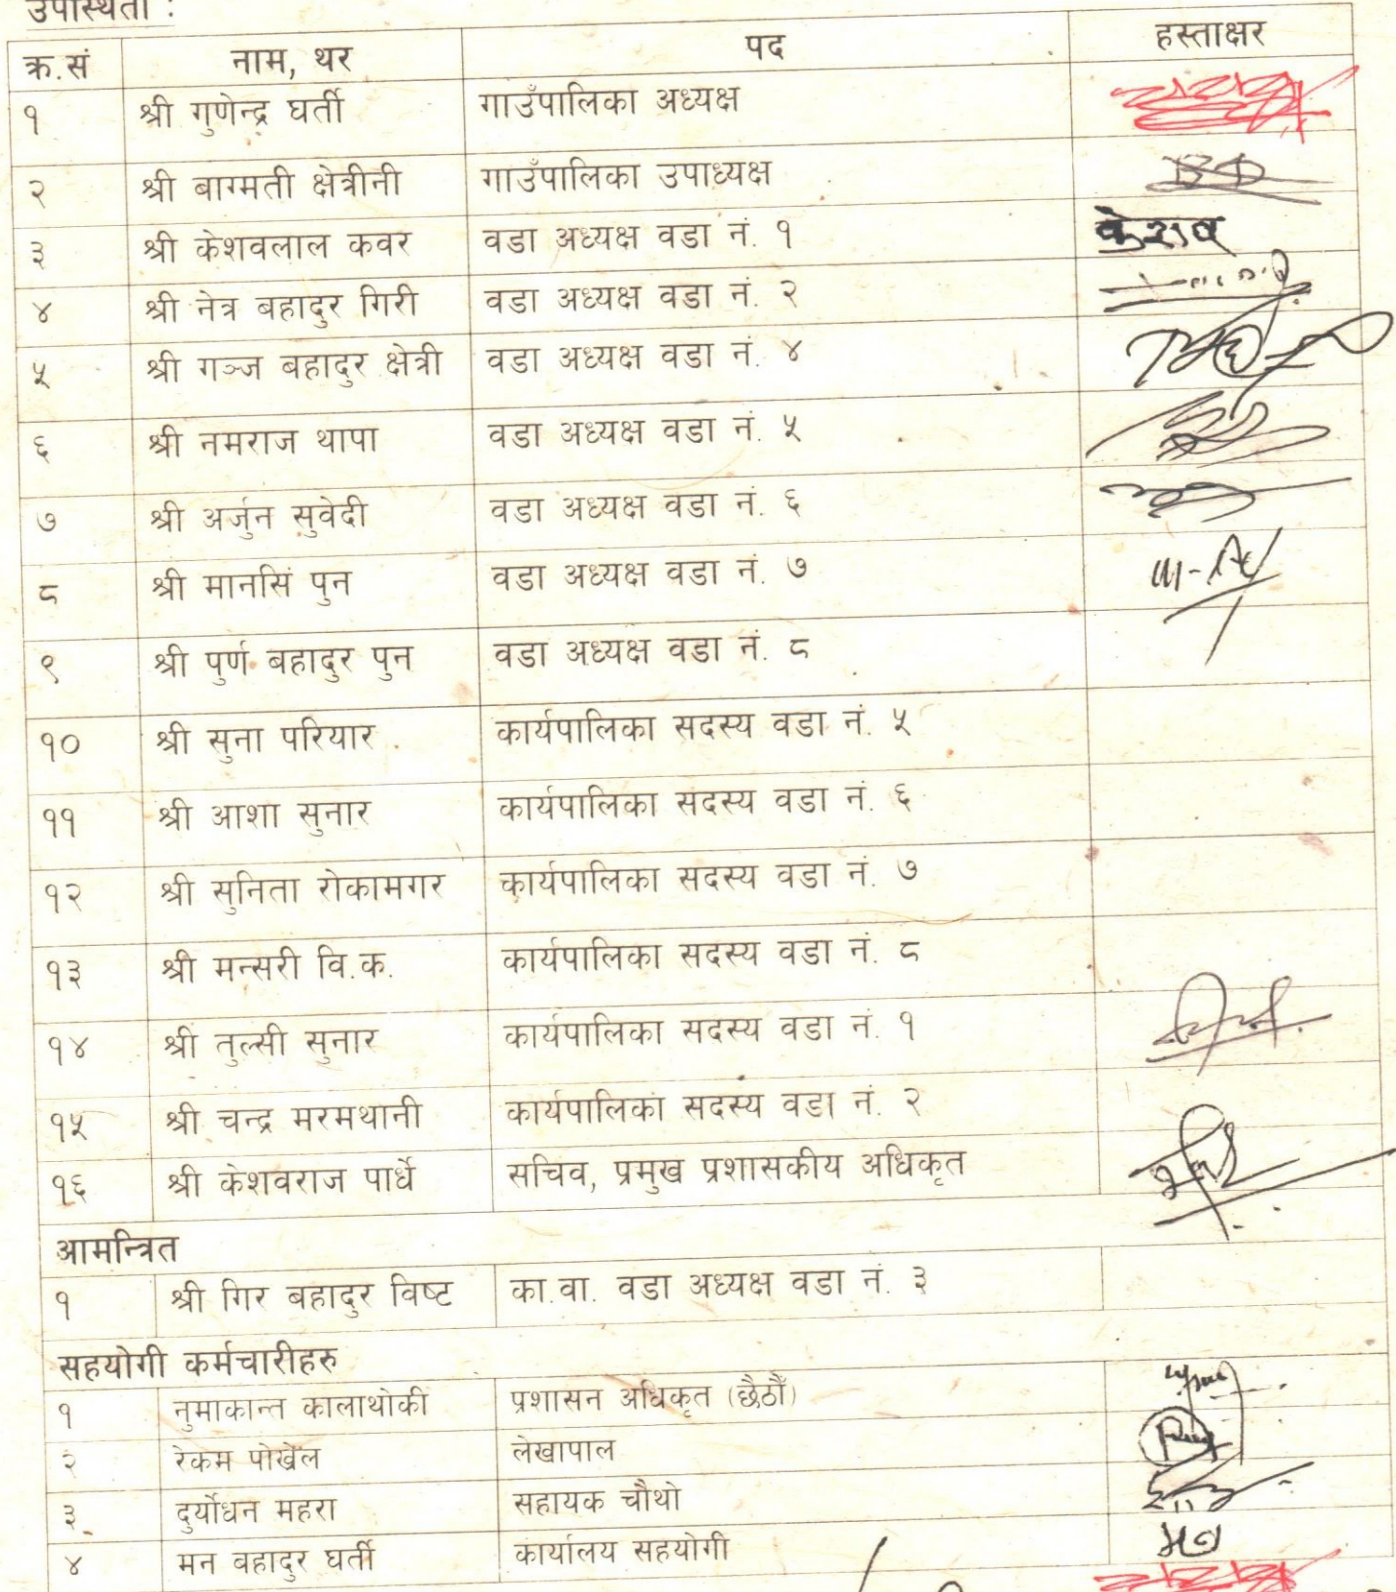 उपस्थिती :
क्र.सं नाम, थर पद हस्ताक्षर
१ श्री गुणेन्द्र घर्ती गाउँपालिका अध्यक्ष
२ श्री बाग्मती क्षेत्रीनी गाउँपालिका उपाध्यक्ष
३ श्री केशवलाल कवर वडा अध्यक्ष वडा नं. १ केशव
४ श्री नेत्र बहादुर गिरी वडा अध्यक्ष वडा नं. २
५ श्री गञ्ज बहादुर क्षेत्री वडा अध्यक्ष वडा नं. ४
६ श्री नमराज थापा वडा अध्यक्ष वडा नं. ५
७ श्री अर्जुन सुवेदी वडा अध्यक्ष वडा नं. ६
८ श्री मानसिं पुन वडा अध्यक्ष वडा नं. ७
९ श्री पुर्ण बहादुर पुन वडा अध्यक्ष वडा नं. ८
१० श्री सुना परियार कार्यपालिका सदस्य वडा नं. ५
११ श्री आशा सुनार कार्यपालिका सदस्य वडा नं. ६
१२ श्री सुनिता रोकामगर कार्यपालिका सदस्य वडा नं. ७
१३ श्री मन्सरी वि.क. कार्यपालिका सदस्य वडा नं. ८
१४ श्री तुल्सी सुनार कार्यपालिका सदस्य वडा नं. १
१५ श्री चन्द्र मरमथानी कार्यपालिका सदस्य वडा नं. २
१६ श्री केशवराज पार्धे सचिव, प्रमुख प्रशासकीय अधिकृत
आमन्त्रित
१ श्री गिर बहादुर विष्ट का.वा. वडा अध्यक्ष वडा नं. ३
सहयोगी कर्मचारीहरु
१ नुमाकान्त कालाथोकी प्रशासन अधिकृत (छैठौँ)
२ रेकम पोखेल लेखापाल
३ दुर्योधन महरा सहायक चौथो
४ मन बहादुर घर्ती कार्यालय सहयोगी मन